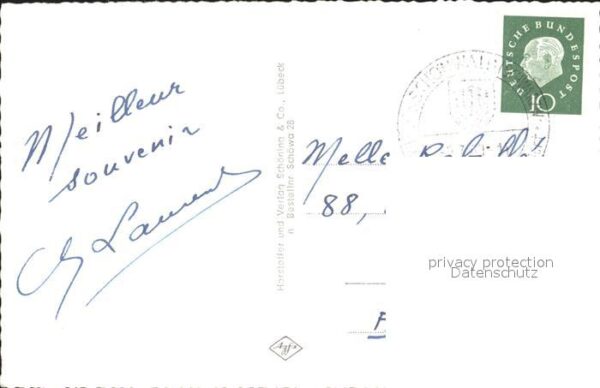 Meilleur
souvenir
Laurent
Hersteller und Verlag Schöning & Co., Lübeck
Bestellnr Schöwa 28
DEUTSCHE BUNDESPOST
10
Melle
88,
privacy protection
Datenschutz
F